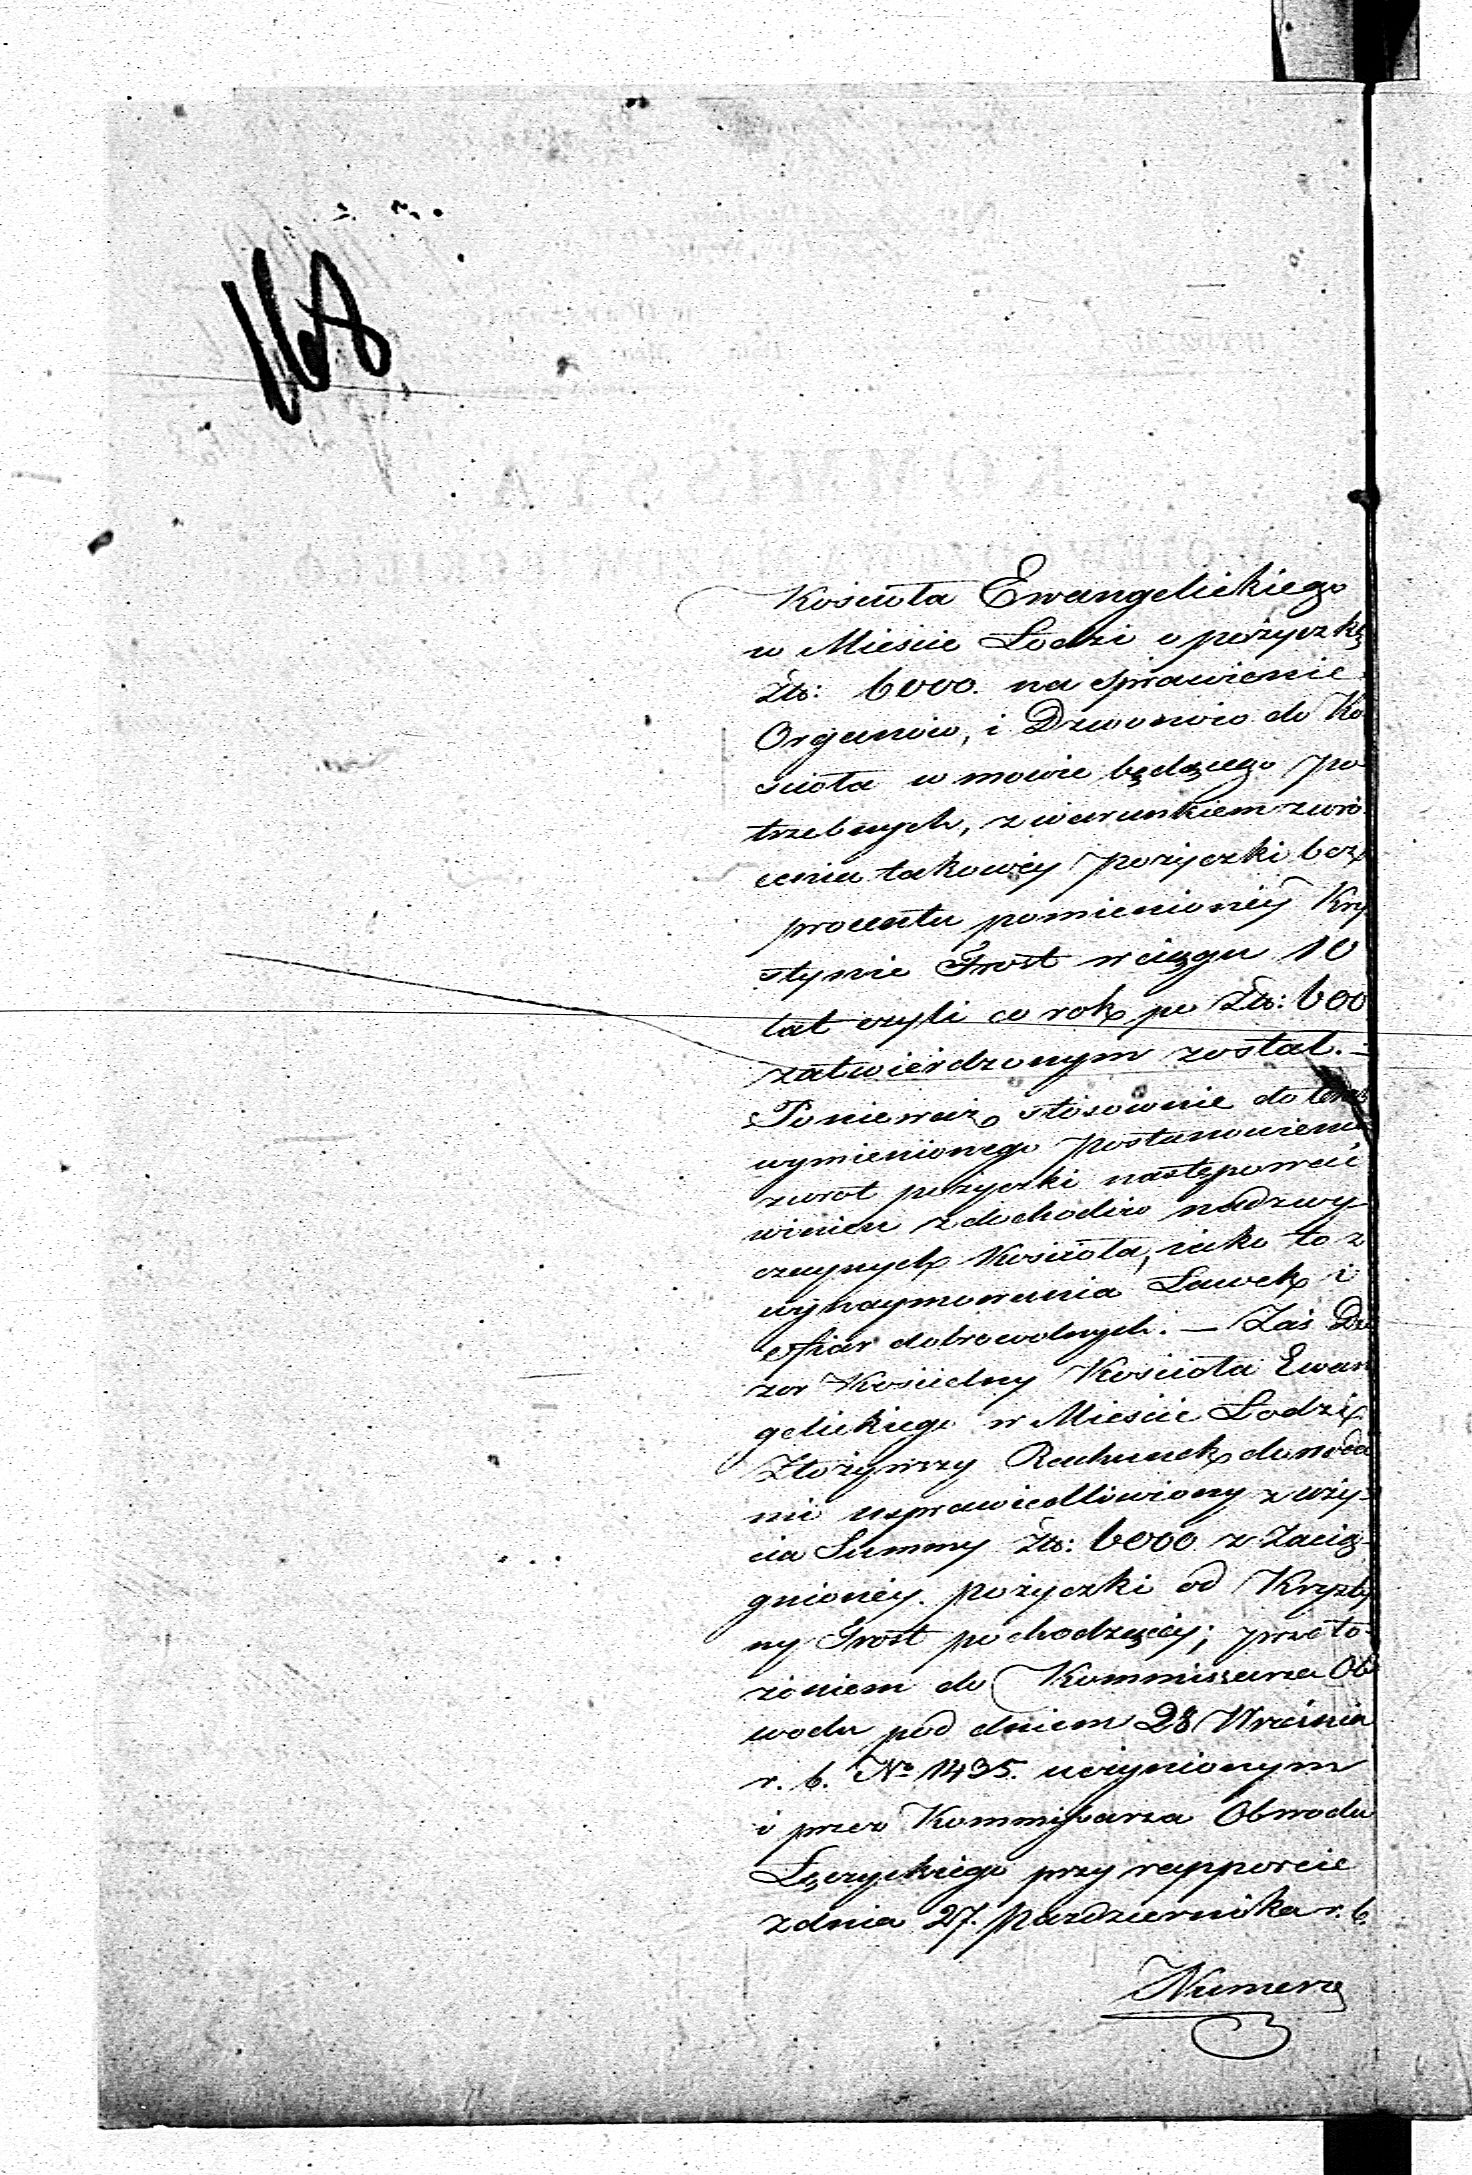 168
Kościoła Ewangelickiego
w Mieście Łodzi o pożyczkę
Złt: 6000. na sprawienie
Organów, i Dzwonów do Ko-
ścioła w mowie będącego po-
trzebnych, z warunkiem zwró-
cenia takowéy pożyczki bez
procentu pomienionéy Kry-
stynie Frost w ciągu 10
lat czyli co rok po Złt: 600
zatwierdzonym został. —
Ponieważ stósownie do
wymienionego postanowienia
zwrot pożyczki następować
winien z dochodów nadzwy-
czaynych Kościoła, iako to z
wynaymowania Ławek i
ofiar dobrowolnych. — Zaś Do
zor Kościelny Kościoła Ewan
gelickiego w Mieście Łodzi
Złożywszy Rachunek dowoda
mi usprawiedliwiony z uży-
cia Summy Złt: 6000 z Zacią-
gnionéy pożyczki od Krysty
ny Frost pochodzącéy; przeło-
żeniem do Kommissarza Ob
wodu pod dniem 28 Września
r. b. No 1435. uczynionym
i przez Kommissarza Obwodu
Łęczyckiego przy rapporcie
z dnia 27. Pazdziernika r. b.
Numerą